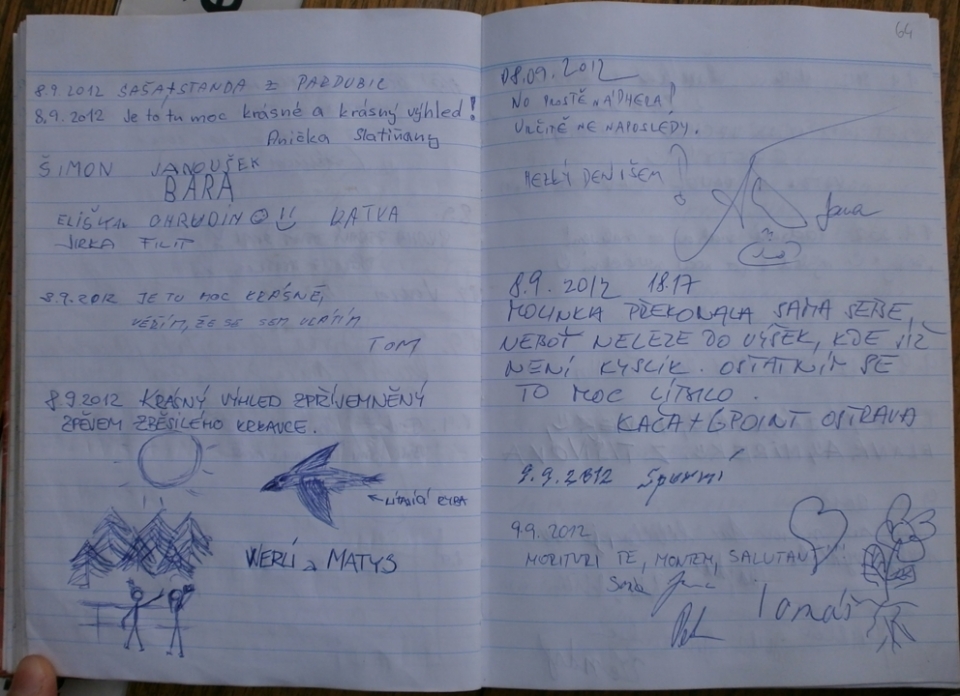 8.9.2012 SAŠA + STANDA Z PARDUBIC
8.9.2012 Je to tu moc krásné a krásný výhled!
Anička Slatiňany
ŠIMON JANOUŠEK
BÁRA
ELIŠKA OHRUDIN KATKA
JIRKA FILIP
8.9.2012 JE TU MOC KRÁSNĚ,
VĚŘÍM, ŽE SE SEM VRÁTÍM
TOM
8.9 2012 KRÁSNÝ VÝHLED ZPŘÍJEMNĚNÝ
ZPĚVEM ZBĚSILÉHO KRKAVCE.
← LÍTAJÍCÍ RYBA
WERLÍ a MATYS
64
08.09.2012
NO PROSTĚ NÁDHERA!
URČITĚ NE NAPOSLEDY.
HEZKÝ DEN VŠEM
Jana
8.9. 2012 18.17
MOLINKA PŘEKONALA SAMA SEBE,
NEBOŤ NELEZE DO VÝŠEK, KDE JIŽ
NENÍ KYSLÍK. OSTATNÍM SE
TO MOC LÍBILO.
KAČA + GPOINT OSTRAVA
9.9.2012
9.9. 2012
MORITURI TE, MONTEM, SALUTANT!